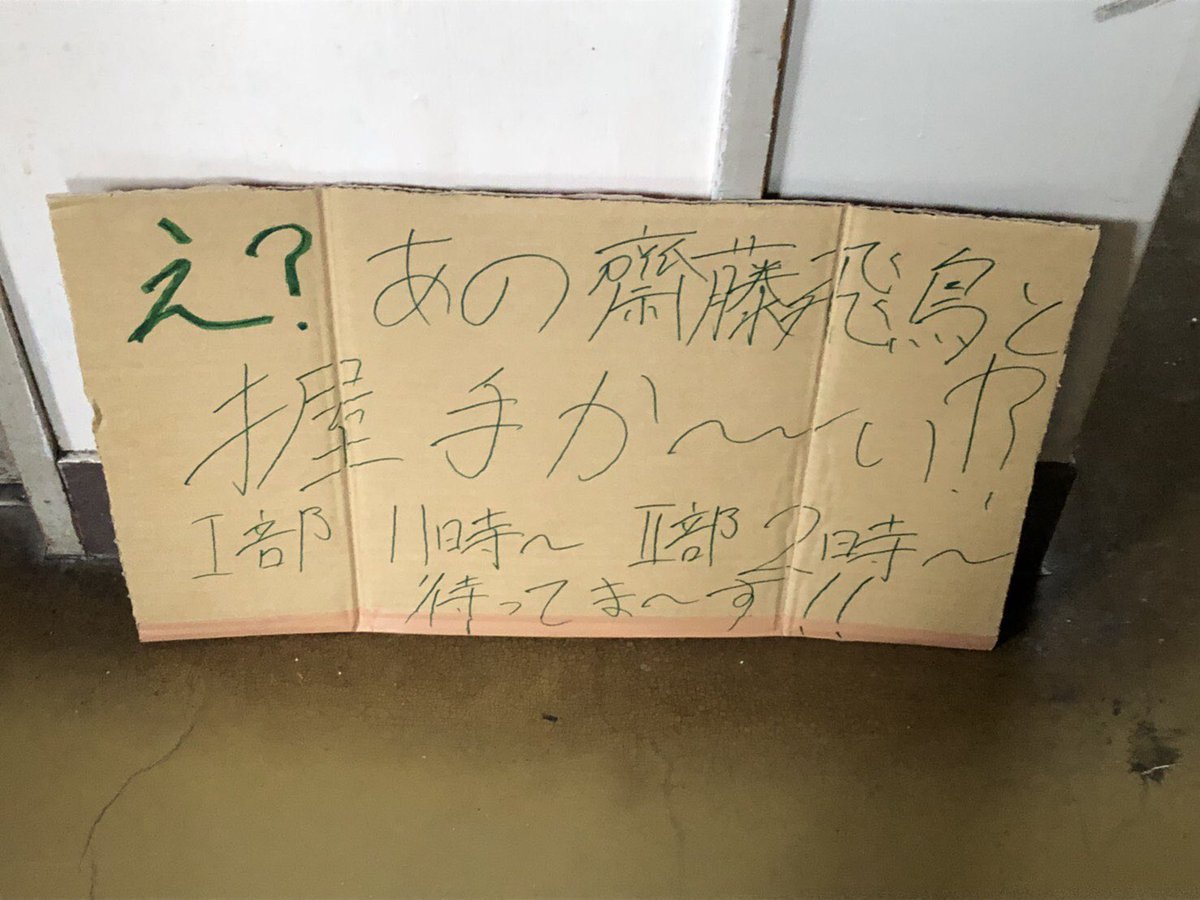 え? あの齋藤飛鳥と
握手か〜い!?
I部 11時〜 II部 2時〜
待ってま〜す!!